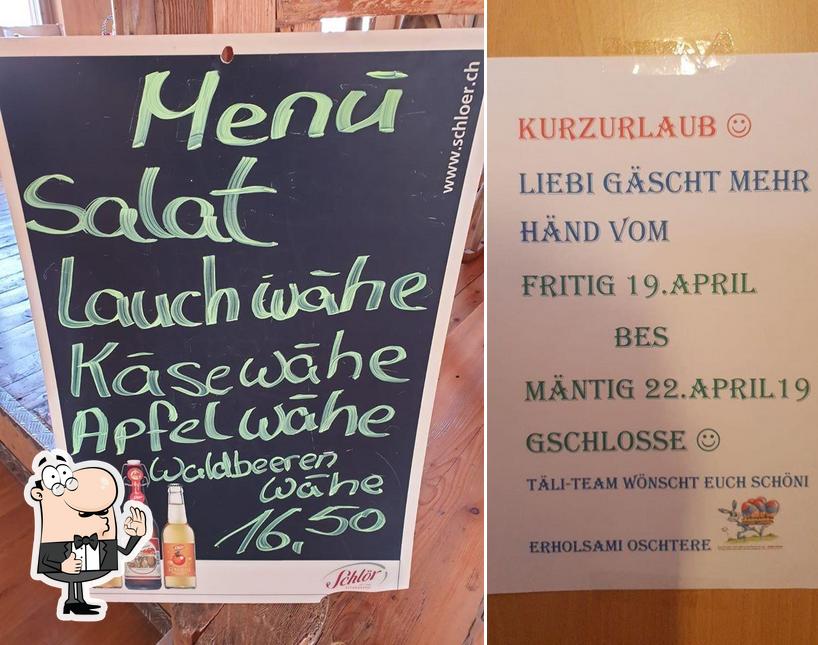 Menü
www.schloer.ch
Salat
Lauchwähe
Käsewähe
Apfelwähe
Waldbeeren
wähe
16,50
Schlör
KURZURLAUB ☺
LIEBI GÄSCHT MEHR
HÄND VOM
FRITIG 19.APRIL
BES
MÄNTIG 22.APRIL19
GSCHLOSSE ☺
TÄLI-TEAM WÖNSCHT EUCH SCHÖNI
ERHOLSAMI OSCHTERE